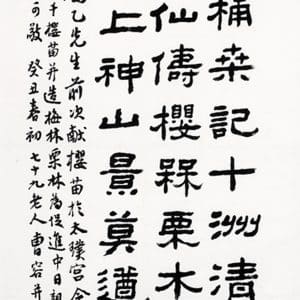 桒記十洲清
仙儔櫻槑栗木
上神山景莫遒
乙先生前次獻櫻苗於太璞宮
櫻苗并造梅林栗林為促進中日親
可敬 癸丑春初 七十九老人曹容并